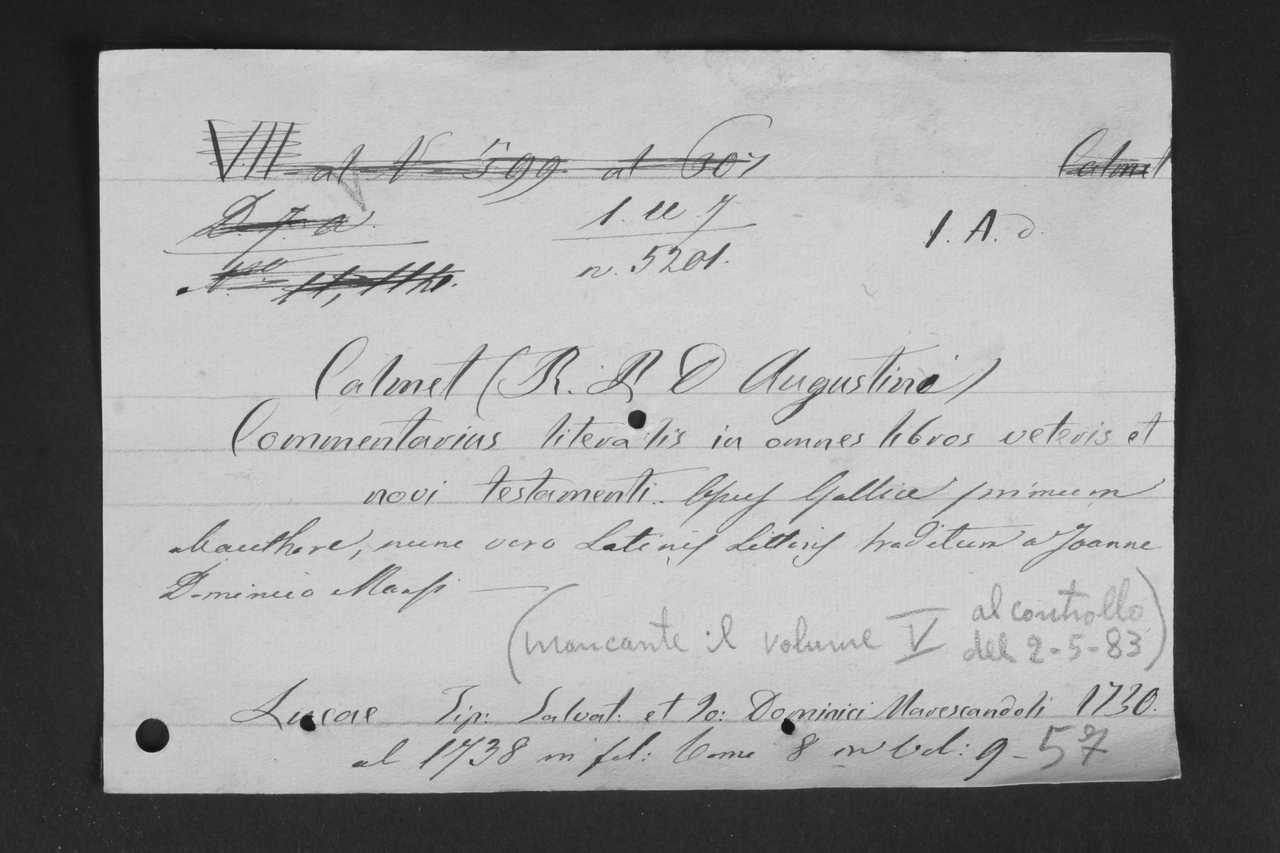 VII al N 599 al 607 Calmet
D. 7. a. 1. u. 7 1. A. d.
N.ro n. 5201.
Calmet (R. P. D Augustini)
Commentarius literalis in omnes libros veteris et
novi testamenti. Opus Gallice primum
ab authore, nunc vero Latinis Litteris traditum a Joanne
Dominico Mansi —
(mancante il volume V al controllo
del 2-5-83)
Lucae Tip: Salvat: et Jo: Dominici Marescandoli 1730.
al 1738 in fol: Tomi 8 in Vol: 9 - 57